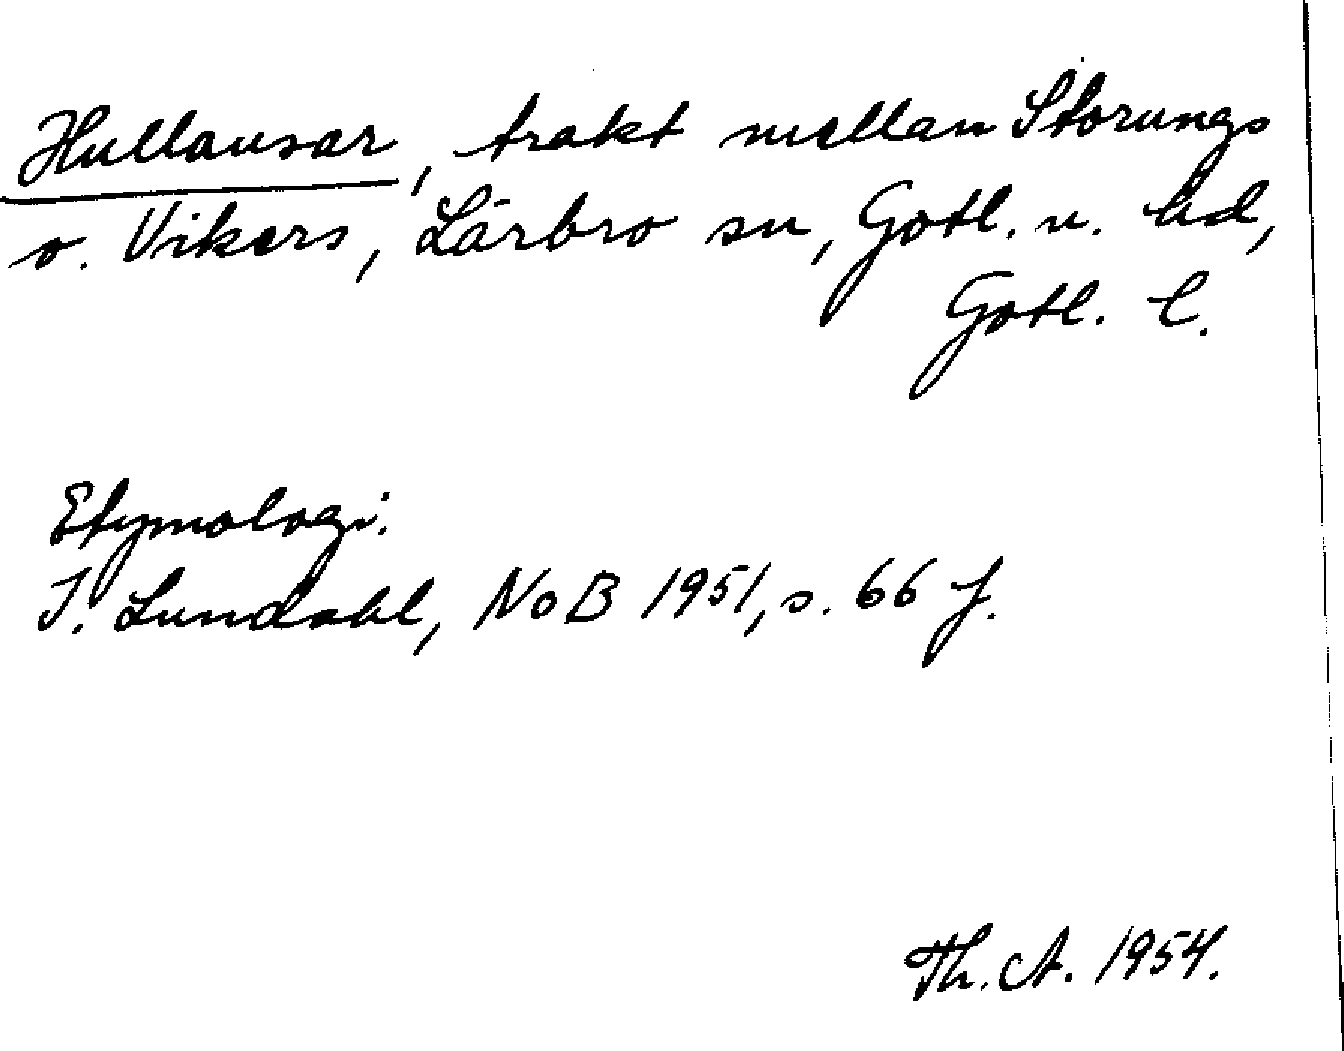 Hullausar, trakt mellan Storungs
o. Vikers, Lärbro sn, Gotl. n. hd,
Gotl. l.
Etymologi.
I. Lundahl, NoB 1951, s. 66 f.
Th. A. 1954.